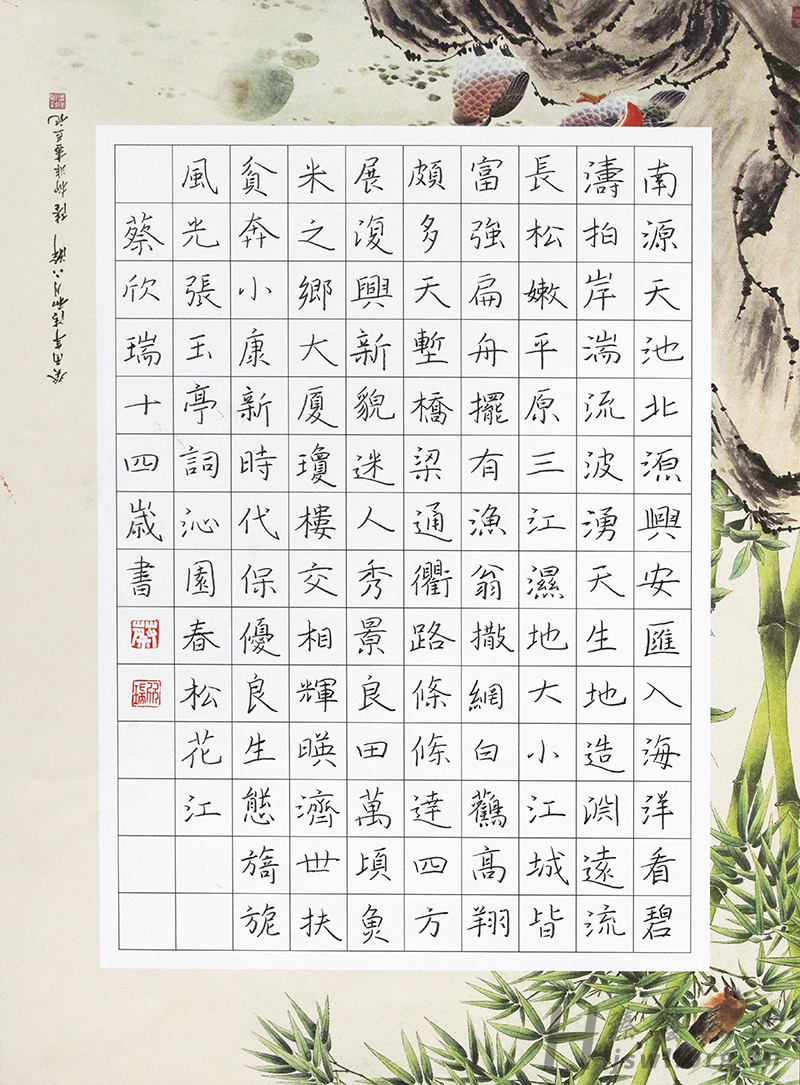 南源天池北源興安匯入海洋看碧
濤拍岸湍流波湧天生地造淵遠流
長松嫩平原三江濕地大小江城皆
富強扁舟擺有漁翁撒網白鸛高翔
頗多天塹橋梁通衢路條條達四方
展復興新貌迷人秀景良田萬頃魚
米之鄉大厦瓊樓交相輝暎濟世扶
貧奔小康新時代保優良生態旖旎
風光張玉亭詞沁園春松花江
蔡欣瑞十四歲書